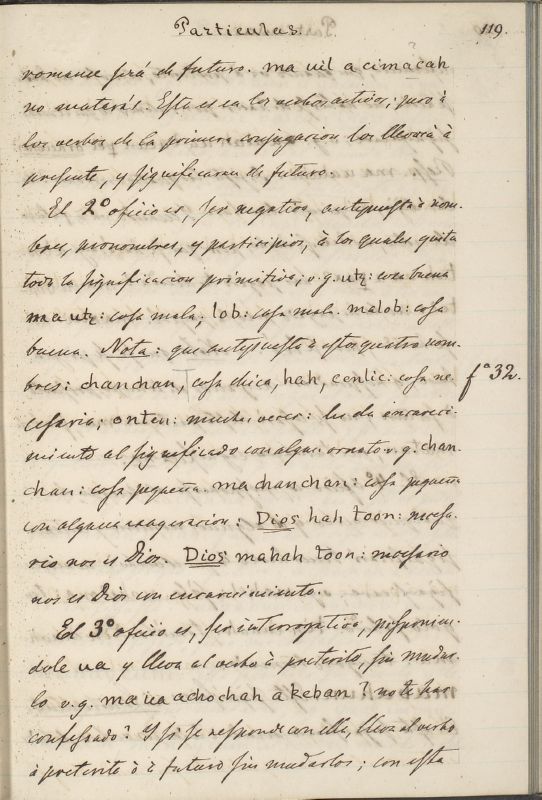 Particulas.
119.
romance será de futuro. ma uil a cimacah
no mataràs. Esto es en los verbos activos; pero à
los verbos de la primera conjugacion los llevarà à
presente, y significaran de futuro.
El 2º oficio es, ser negativo, antepuesta à nom-
bres, pronombres, y participios, à los quales quita
toda la significacion primitiva; v.g. utz: cosa buena
ma utz: cosa mala; lob: cosa mala. malob: cosa
buena. Nota: que antepuesta à estos quatro nom-
bres: chanchan, cosa chica, hah, cenlic: cosa ne-
fª 32.
cesaria; onten: muchas veces: les da encareci-
miento al significado con algun ornato v.g. chan.
chan: cosa pequeña. ma chanchan: cosa pequeña
con alguna exageracion: Dios hah toon: necesa-
rio nos es Dios. Dios mahah toon: necesario
nos es Dios con encarecimiento.
El 3º oficio es, ser interrogativa, posponien-
dole ua y lleva al verbo à preterito, sin mudar-
lo v.g. ma ua achochah a keban? no te has
confessado? Y si se responde con ella, lleva al verbo
à preterito ò à futuro sin mudarlos; con esta